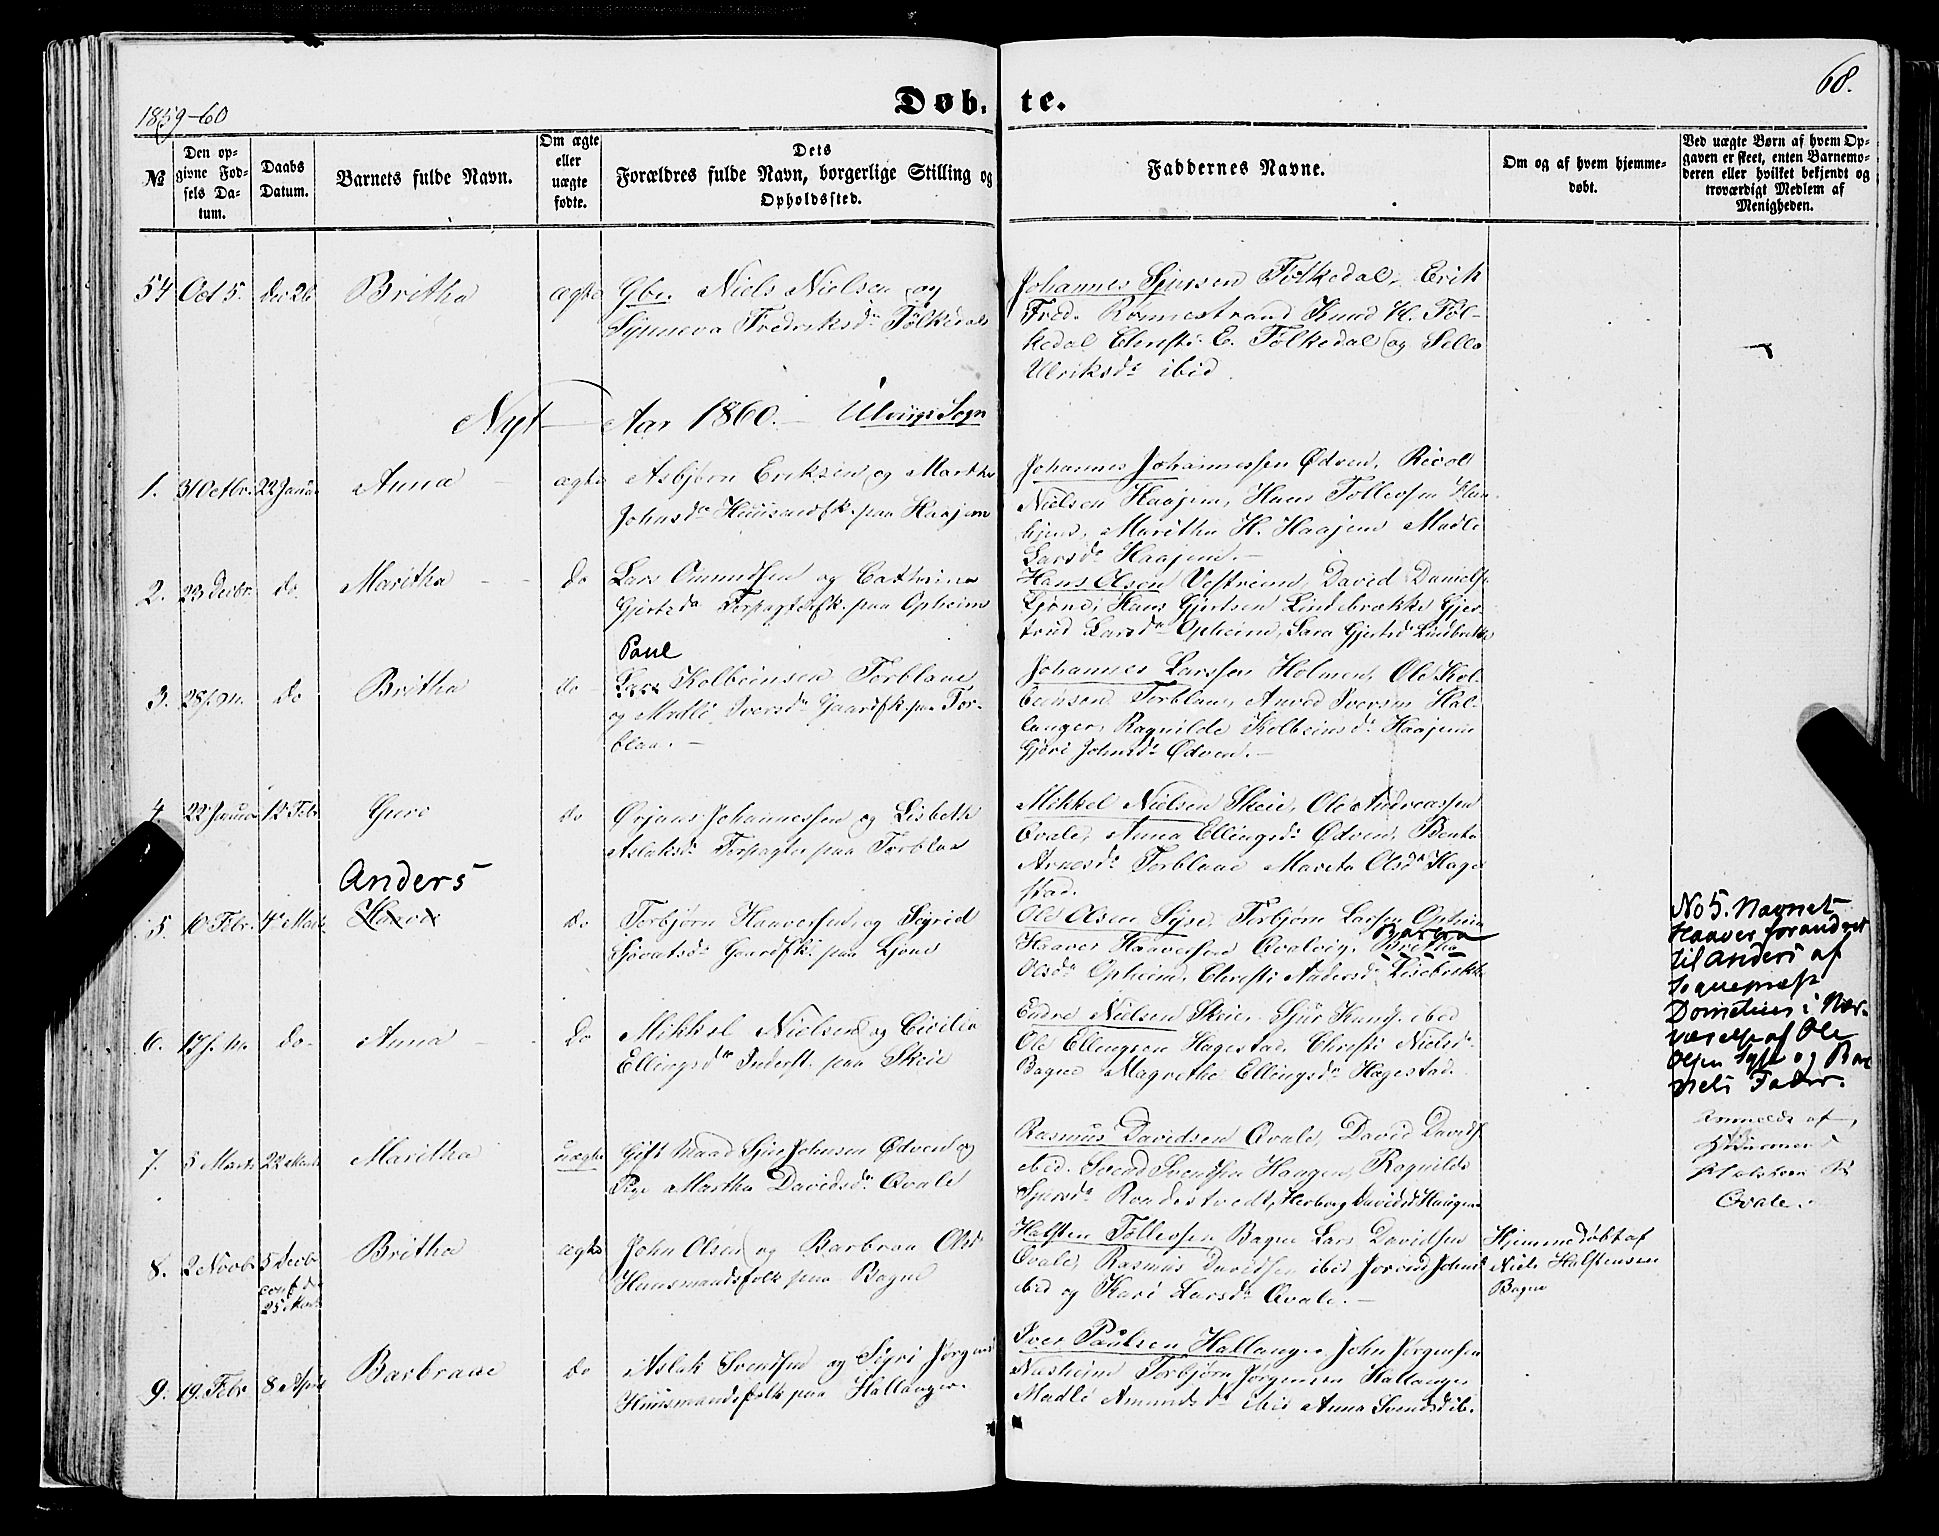 68.
1859-60
Døb. te.
№
Den op-
givne Fød-
sels Da-
tum.
Daabs
Datum.
Barnets fulde Navn.
Om ægte
eller
uægte
fødte.
Dets
Forældres fulde Navn, borgerlige Stilling og
Opholdssted.
Faddernes Navne.
Om og af hvem hjemme-
døbt.
Ved uægte Børn af hvem Op-
gaven er skeet, enten Barnemo-
deren eller hvilket bekjendt og
troværdigt Medlem af
Menigheden.
54 Oct 5. Dec 26 Britha ægte Gbr. Niels Nielsen og
Synneva Fredriksdr Følkedal
Johannes Sjursen Følkedal, Erik
Fred. Rønnestrand Knud H. Føl-
kedal Christi E. Følkedal og
Ulriksdr ibid.
Nyt Aar 1860. Ulviigs Sogn
1. 31 Octbr. 22 Januar Anna ægte Asbjørn Eriksen og Martha
Johnsdr Huusmdfk. paa Haajem
Johannes Johannessen Ødven,
Nielsen Haajem, Hans Tollevsen
Maritha H. Haajem Madle
Larsdr Haajem.
2. 23 Decbr. do Maritha do Lars Omundsen og Cathrina
Gjertsdr Forpagterfk. paa Opheim
Hans Olsen Vestreim, David Daniels.
Ljøne, Hans Gjertsen Lindebrække Gjer-
trud Larsdr Opheim, Sara Gjertsdr Lindbrekke
Paul
3. 28 do Britha do Kolbeinsen Torblaae
og Madle Iversdr Gaardfk. paa Tor-
blaa.
Johannes Larssen Holmen, Ole Kol-
beinsen Torblaae, Amund Iversen Hal-
langer, Ragnilde Kolbeinsdr Haajem
Gjøri Johnsdr Ødven.
4. 22 Januar 12 Febr Guro do Ørjans Johannessen og Lisbeth
Aslaksdr Forpagter paa Torblaa
Mikkel Nielsen Skeie, Ole Andreassen
Qvale, Anna Ellingsdr Ødven, Bente
Arnesdr Torblaae Marita Olsdr Hage-
stad.
Anders
5. 10 Febr. 4 Marts Haaver do Torbjørn Haaversen og Sigrid
Sjovatsdr Gaardfk. paa Ljøne
Ole Olsen Syse, Torbjørn Larsen Opheim
Barbra
Haaver Haaversen Qvalvig, Britha
Olsdr Opheim, Christi Andersdr
No 5. Navnet
Haaver forandret
til Anders af
Sognepræst
i Nær-
værelse af Ole
Olsen Syse og Bar-
nets Fader.
6. 17 do Anna do Mikkel Nielsen og Cicilia
Ellingsdr Inderst. paa Skeie
Endre Nielsen Skeie, Sjur ibid
Ole Ellingsen Hagestad, Christi Nielsdr
Bagne Magrethe Ellingsdr Hagestad.
7. 5 Marts 22 Marts Maritha uægte Gift Mand Sjur Johnsen Ødven og
Pige Martha Davidsdr Qvale
Rasmus Davidsen Qvale, David Davids.
ibid. Svend Svendsen Haugen, Ragnilde
Sjursdr Rondestvedt, Herborg Davidsd Haugen
Anmeldt af
Qvale.
8. 2 Novbr. 5 Decb
conf. d.
25 Marts Britha ægte John Olsen og Barbraa Olsdr
Huusmandsfolk paa Bagne
Halsten Tollevsen Bagne Lars Davidsen
Qvale, Rasmus Davidsen ibid Jorend Johnsd
ibid og Kari Larsdr Qvale.
Hjemmedøbt af
Niels Halstensen
Bagne
9. 19. Febr 8 April Barbraae do Aslak Svendsen og Sigri Jørgensd
Huusmandsfolk paa Hallanger.
Iver Paulsen Hallanger, John Jørgensen
Nesheim Torbjørn Jørgensen Hallanger
Madle Amundsdr ibid Anna Svendsd ib.